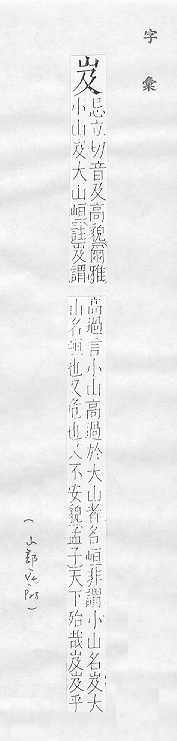 字彙
岌
忌立切音及高貌爾雅
小山岌大山峘註岌謂
高過言小山高過於大山者名峘非謂小山名岌大
山名峘也又危也又不安貌孟子天下殆哉岌岌乎
(山部